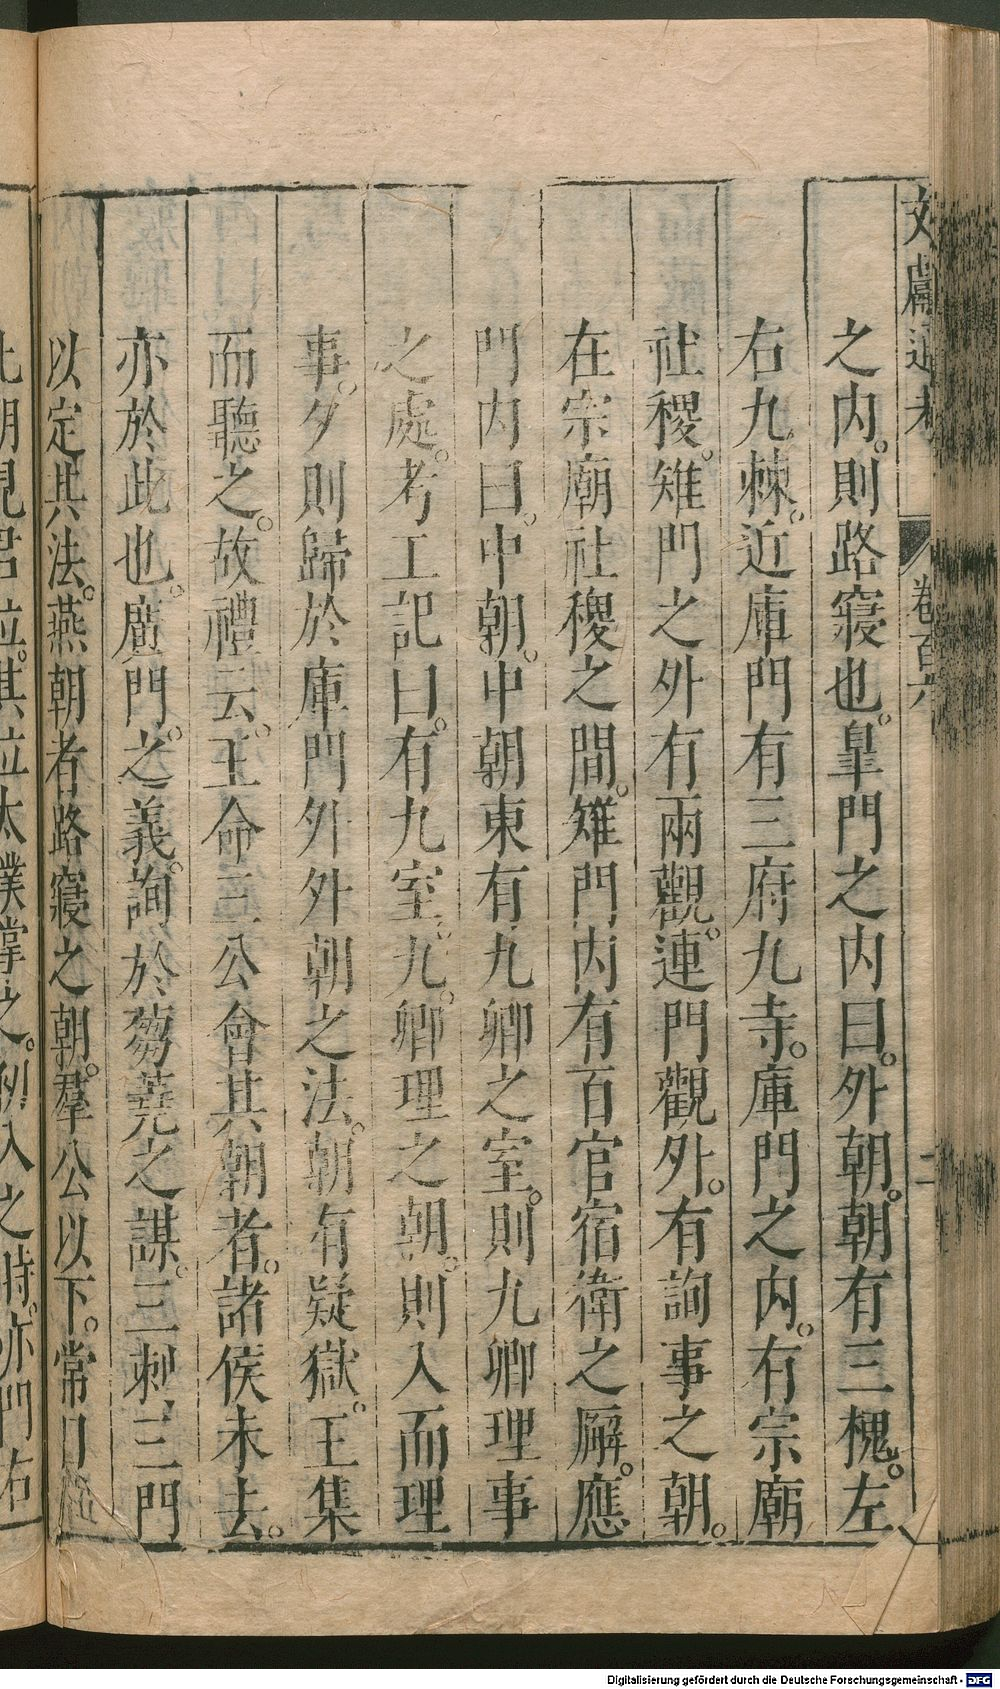 文獻通考 卷百六 二
之内。則路寢也。皐門之内曰。外朝。朝有三槐。左
右九棘。近庫門有三府九寺。庫門之内。有宗廟
社稷。雉門之外有兩觀。連門觀外。有詢事之朝。
在宗廟社稷之間。雉門内有百官宿衛之廨。應
門内曰。中朝。中朝東有九卿之室。則九卿理事
之處。考工記曰。有九室。九。卿理之朝。則入而理
事。夕則歸於庫門外外朝之法。朝有疑獄。王集
而聽之。故禮云。王命三公會其朝者。諸侯未去。
亦於此也。應門。之義。詢於蒭蕘之謀。三刺三門
以定其法。燕朝者路寢之朝。羣公以下。常日
此朝見君位。其位太僕掌之。例入之時。亦門右
Digitalisierung gefördert durch die Deutsche Forschungsgemeinschaft - DFG